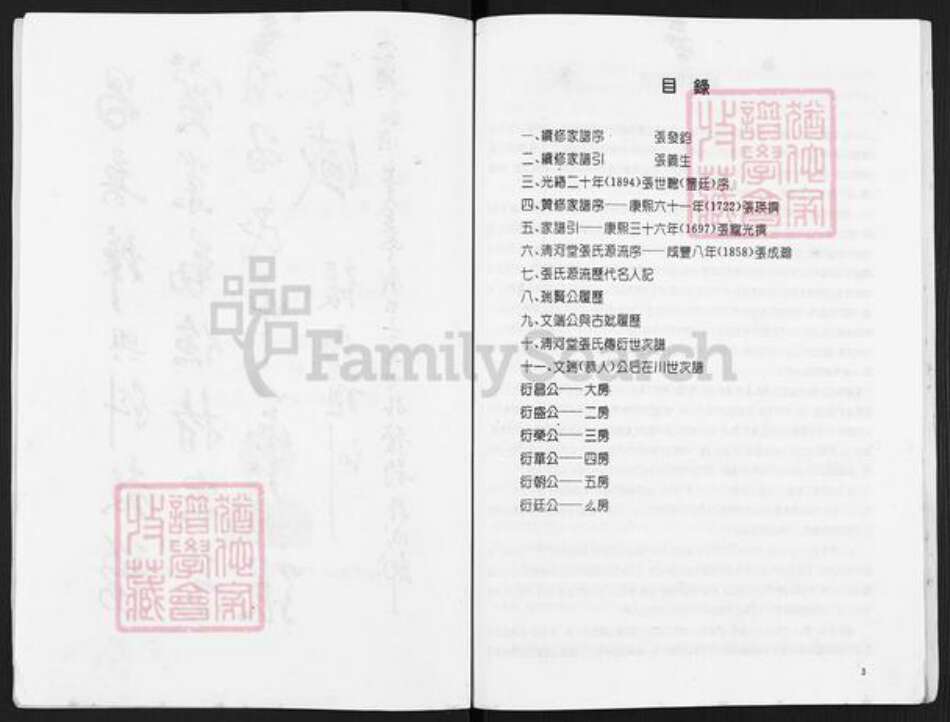 目 錄
一、續修家譜序 張發鈞
二、續修家譜引 張義生
三、光緒二十年(1894)張世聰(豐廷)序
四、贊修家譜序——康熙六十一年(1722)張瑛撰
五、家譜引——康熙三十六年(1697)張寵光撰
六、清河堂張氏源流序——咸豐八年(1858)張成瀚
七、張氏源流歷代名人記
八、瑞賢公履歷
九、文端公與古妣履歷
十、清河堂張氏傳衍世次譜
十一、文端(恭人)公后在川世次譜
衍昌公——大房
衍盛公——二房
衍榮公——三房
衍華公——四房
衍朝公——五房
衍廷公——么房
FamilySearch
猶他家
譜學會
收藏
猶他家
譜學會
收藏
3